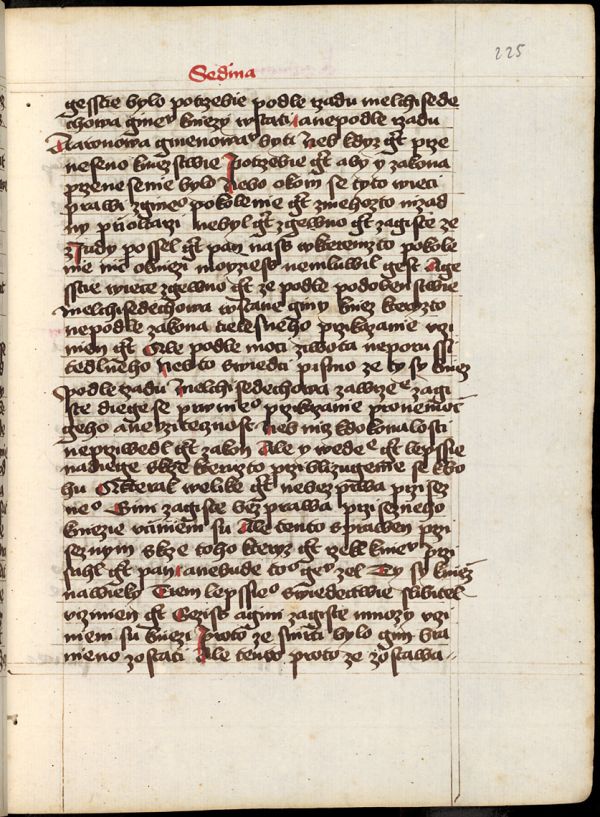 225
Sedma
gesscie bylo potrzebie podle rzadu melchisede
chowa gmeᵒ kniezy wstati anepodle rzadu
Aaronowa gmenowaᵒ byti Neb kdyz gt prze
neseno kniezstwie potrzebie gt aby y zakona
przenesenie bylo Nebo okom se tyto wieci
prawi zgmeᵒ pokolenie gt zniehozto nizad
ny przi oltarzi nebyl gt zgewno gt zagiste ze
z Judy possel gt pan nass wkteremzto pokole
nie nic okniezi moyziess nemluwil gest Age
sscie wiece zgewno gt ze podle podobenstwie
melchisedechowa wstane giny kniez kteryzto
nepodle zakona tielesneho przikazanie vczi
nien gt Ale podle moci ziwota neporussi
tedlneho Neb to swiedci pismo ze ty sy kniez
podle rzadu Melchisedechowa zawrzeᵉ zagi
ste diege se prwnieᵒ przikazanie pronemoc
geho aneuzitecznost Neb nicz kdokonalosti
neprziwedl gt zakon Ale y wedeᵉ gt lepssie
nadiege skrze kteruzto prziblizugeme se kbo
hu A kterak welike gt nebez prawa przisez
neᵒ Gini zagiste bez prawa przisezneho
kniezie vczinieni su Ale tento sprawen przi
seznym skrze toho kteryz gt rzekl kniemᵘ przi
sahl gt pan anebude toᵒ geᵘ zel Ty sy kniez
nawieky Tiem lepssieᵒ swiedectwie slibitel
vczinien gt Gezissᵉ a gini zagiste mnozy vczi
nieni su kniezi proto ze smrti bylo gim bra
nieno zostati Ale tento proto ze zostawa